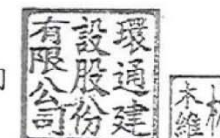 環通建
設股份
有限公司
木
維